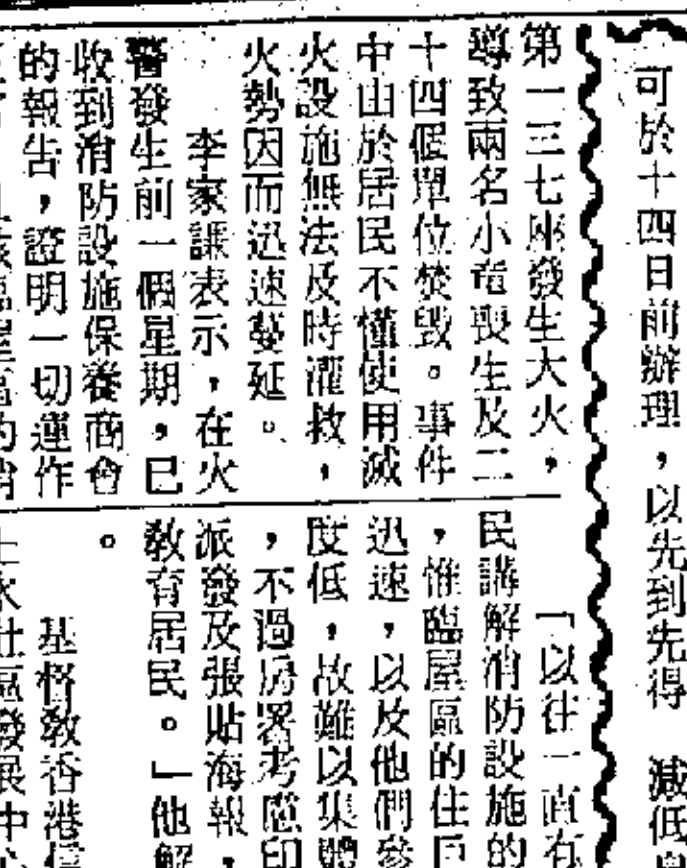 可於十四日前辦理，以先到先得
減低
第一三七座發生大火，
導致兩名小童喪生及二
十四個單位焚毀。事件
中由於居民不懂使用滅
火設施無法及時灌救，
火勢因而迅速蔓延。
李家謙表示，在火
警發生前一個星期，已
收到消防設施保養商會
的報告，證明一切運作
「以往一直有
民講解消防設施的
，惟臨屋區的住戶
迅速，以及他們參
度低，故難以集體
，不過房署考慮印
派發及張貼海報，
教育居民。」他解
。
基督教香港信